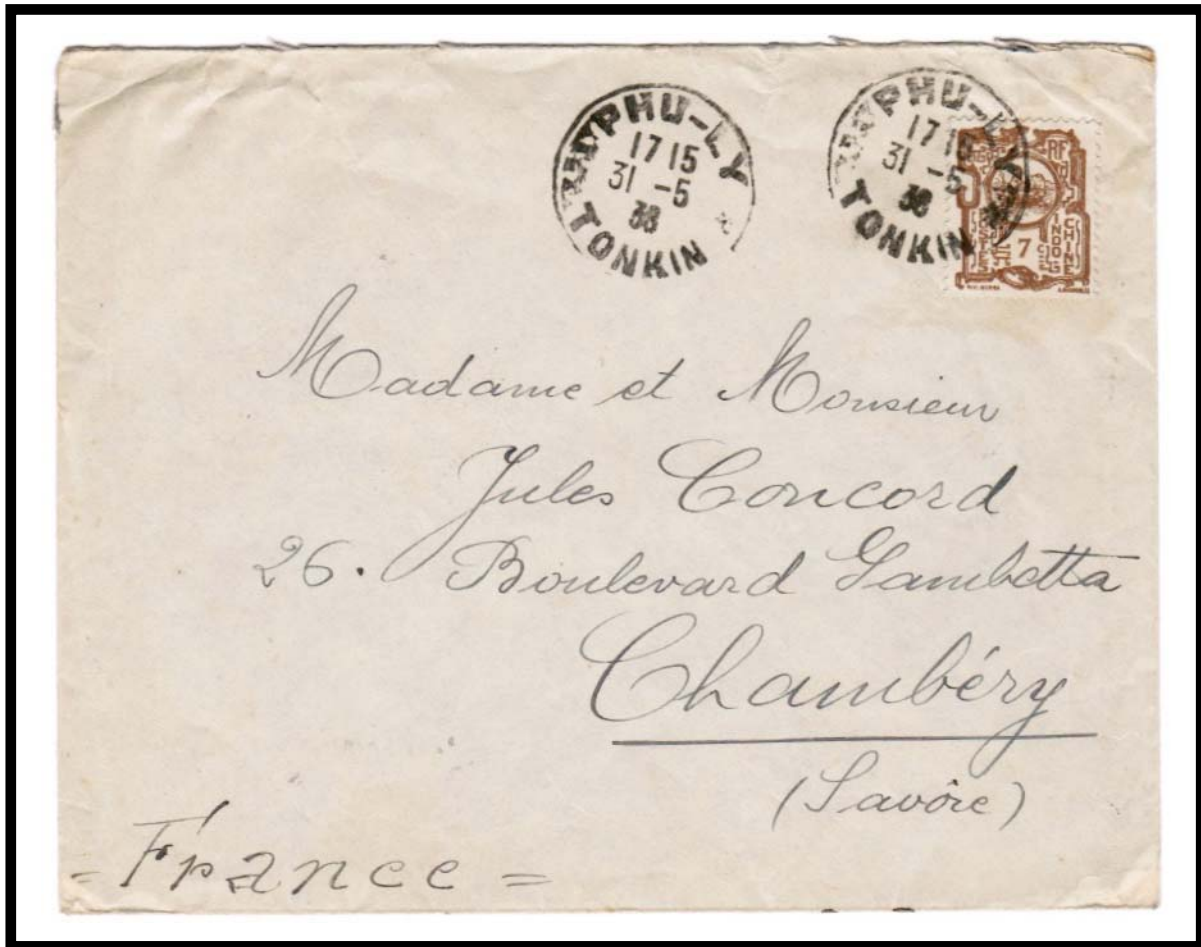 PHU-LY
17 15
31 -5
38
TONKIN
PHU-LY
17 15
31 -5
38
TONKIN
RF
POSTES
INDO
CHINE
7
Madame et Monsieur
Jules Concord
26. Boulevard Gambetta
Chambéry
(Savoie)
= France =